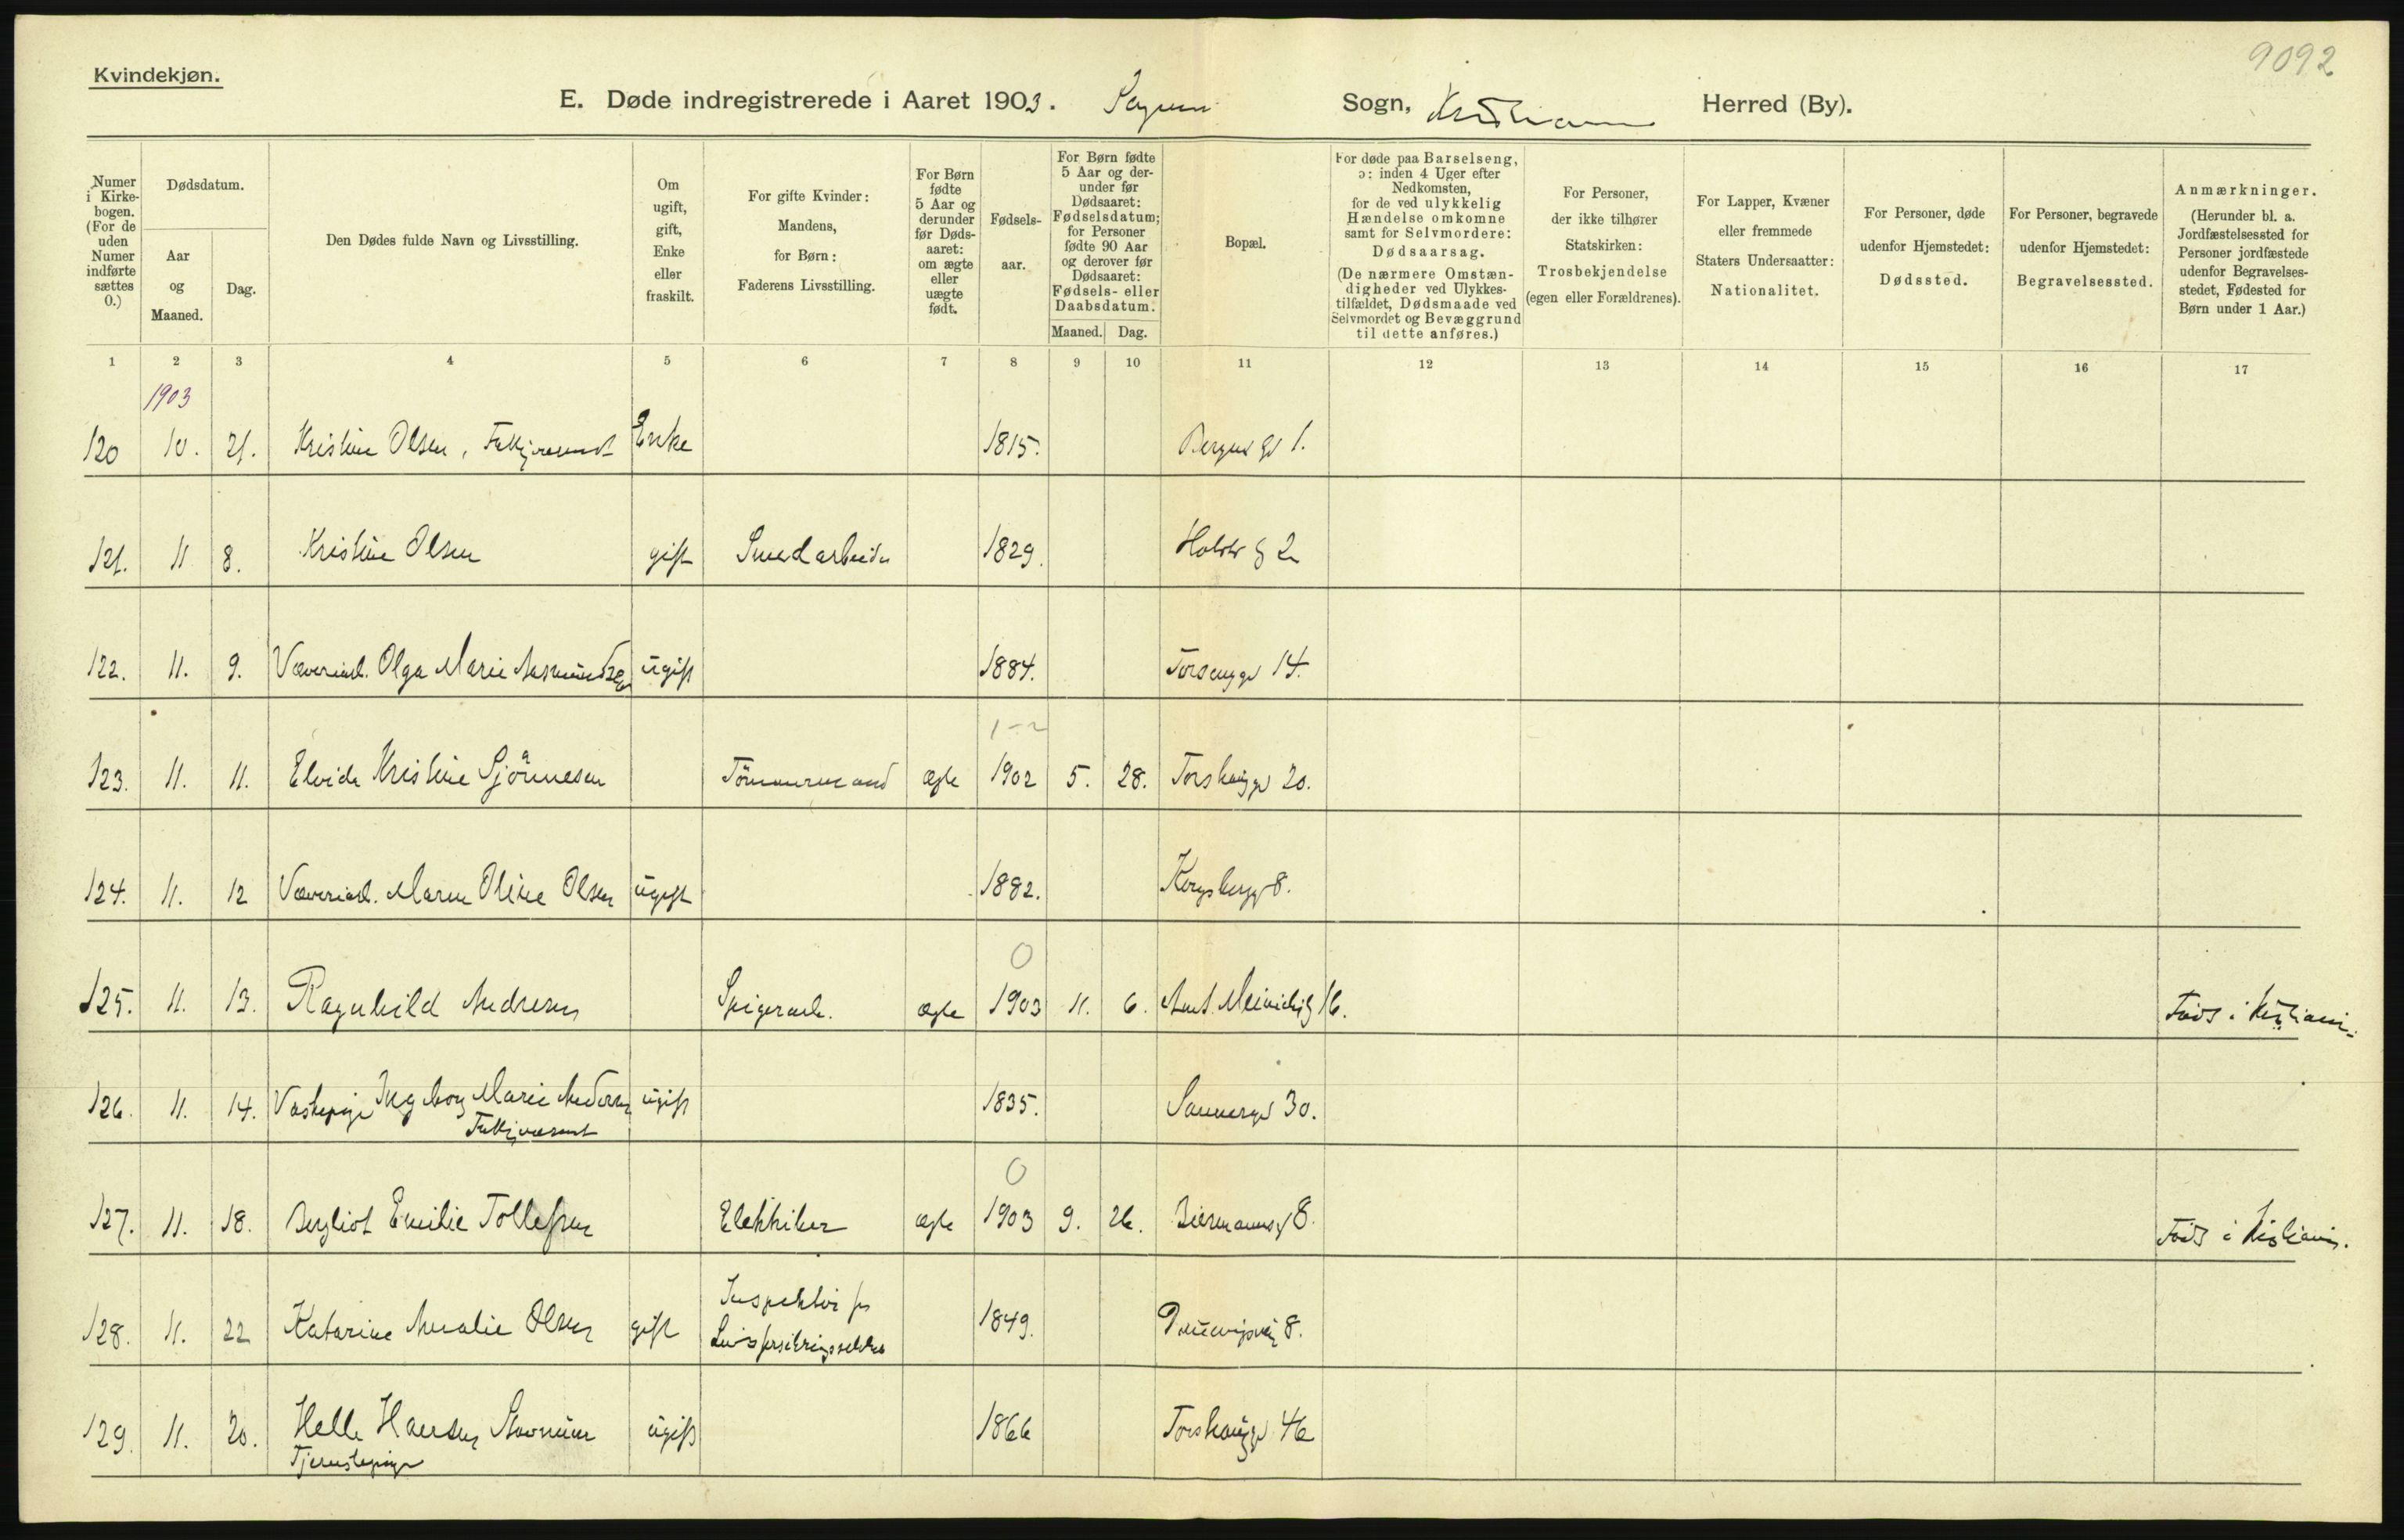 9092
Kvindekjøn.
E. Døde indregistrerede i Aaret 1903. Sogn, Kristiania Herred (By).
Numer i Kirkebogen. (For de uden Numer indførte sættes 0.)
Dødsdatum.
Aar og Maaned.
Dag.
Den Dødes fulde Navn og Livsstilling.
Om ugift, gift, Enke eller fraskilt.
For gifte Kvinder: Mandens, for Børn: Faderens Livsstilling.
For Børn fødte 5 Aar og derunder før Dødsaaret: om ægte eller uægte født.
Fødselsaar.
For Børn fødte 5 Aar og derunder før Dødsaaret: Fødselsdatum; for Personer fødte 90 Aar og derover før Dødsaaret: Fødsels- eller Daabsdatum.
Maaned. Dag.
Bopæl.
For døde paa Barselseng, ɔ: inden 4 Uger efter Nedkomsten, for de ved ulykkelig Hændelse omkomne samt for Selvmordere: Dødsaarsag. (De nærmere Omstændigheder ved Ulykkestilfældet, Dødsmaade ved Selvmordet og Bevæggrund til dette anføres.)
For Personer, der ikke tilhører Statskirken: Trosbekjendelse (egen eller Forældrenes).
For Lapper, Kvæner eller fremmede Staters Undersaatter: Nationalitet.
For Personer, døde udenfor Hjemstedet: Dødssted.
For Personer, begravede udenfor Hjemstedet: Begravelsessted.
Anmærkninger. (Herunder bl. a. Jordfæstelsessted for Personer jordfæstede udenfor Begravelsesstedet, Fødested for Børn under 1 Aar.)
1 2 3 4 5 6 7 8 9 10 11 12 13 14 15 16 17
1903
120 10. 21. Kristine Olsen, Enke 1815. 1.
121. 11 8. Kristine Olsen gift Smedarbeider 1829. 2
122. 11. 9. Væveriarb. Olga Marie ugift 1884. 14.
123. 11. 11. Kristine Tömmermand ægte 1902 5. 28. Torshauggd 20.
124. 11. 12 Væveriarb. Maren Oline Olsen ugift 1882. 8.
0
125. 11. 13. Ragnhild Andresen Spigerarb. ægte 1903 11. 6. 16. Født i Kristiania.
126. 11. 14. Vaskepige Ingeborg Marie ugift 1835. Sannergd 30.
0
127. 11. 18. Bergliot Emilie Tollefsen Elektriker ægte 1903 9. 26. Biermannsg 8. Født i Kristiania.
128. 11. 22 Katarine Amalie Olsen gift Inspektör for 1849. 8.
Livsforsikringsselskab
129. 11. 20. Helle Hansen ugift 1866 Torshauggd 46
Tjenestepige